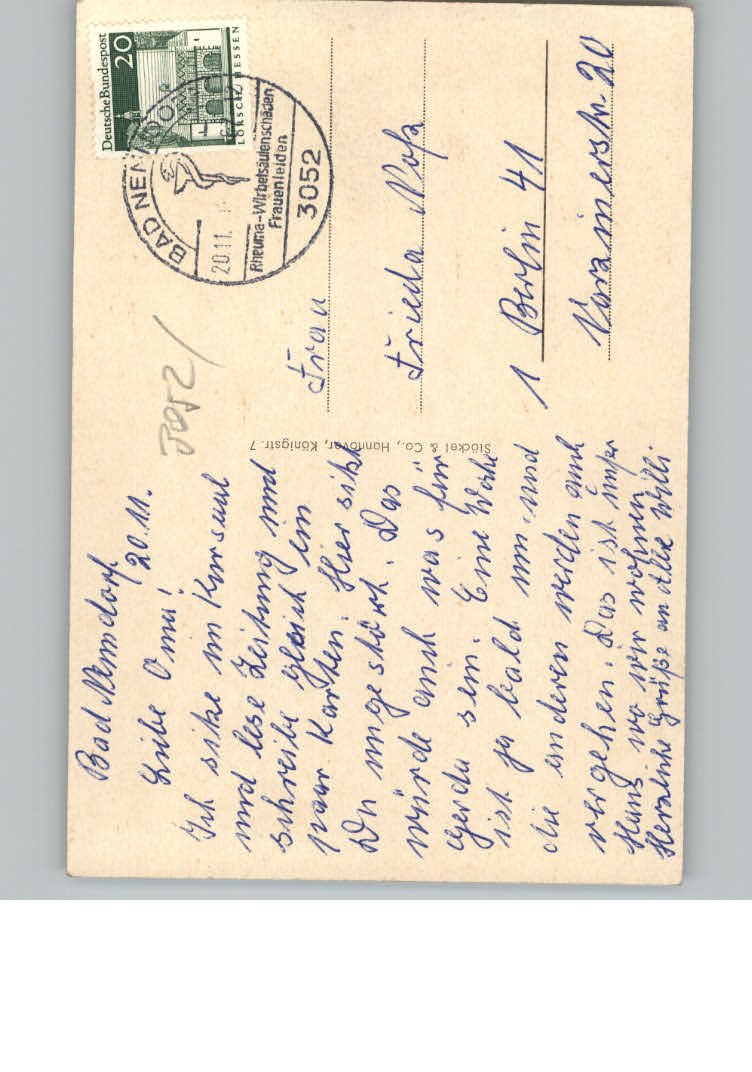 Bad Nenndorf.
20.11.
Liebe Omi!
Ich sitze im Kursaal
und lese Zeitung und
schreibe gleich ein
paar Karten. Hier sitzt
Du ungestört. Das
würde auch was für
Gerda sein. Eine Woche
ist ja bald um. und
die anderen werden auch
vergehen. Das ist unser
Haus wo wir wohnen
Herzliche Grüße an Alle Willi
Stöckel & Co., Hannover, Königstr. 7
3052
Deutsche Bundespost
20
LORSCH/HESSEN
BAD NENNDORF
20.11.
Rheuma-Wirbelsäulenschäden
Frauenleiden
3052
Frau
Frieda
1 Berlin 41
20